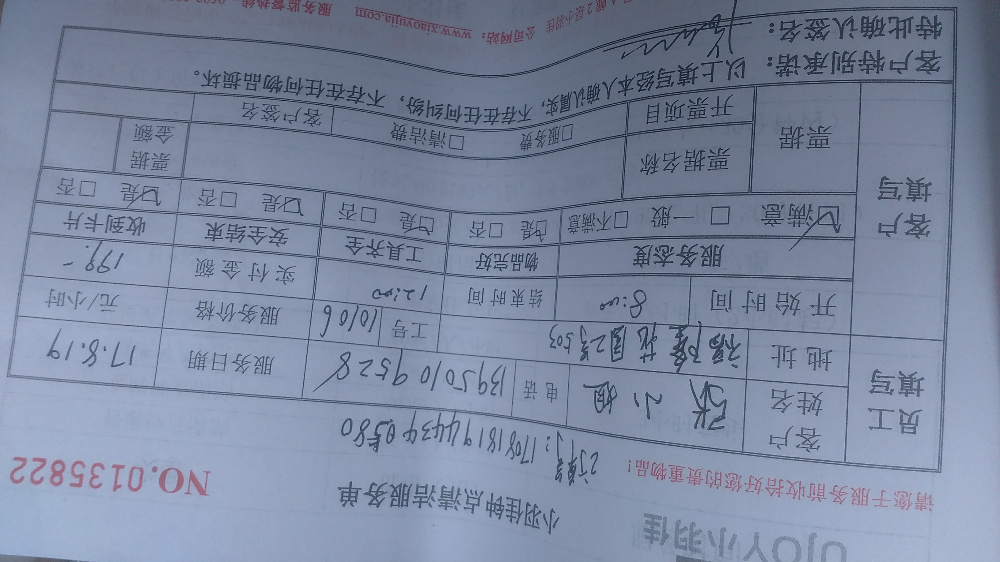 UJOY小羽佳
小羽佳钟点清洁服务单
NO.0135822
请您于服务前收拾好您的贵重物品!
订单号:1708181944340580
员工填写
客户姓名 张小姐 电话 13950109528 服务日期 17.8.19
地址 福隆花园2号503 工号 10106 服务价格 元/小时
开始时间 8:00 结束时间 12:00 实付金额 199.-
客户填写
服务态度 物品完好 工具齐全 安全结束 收到卡片
☑满意 □一般 □不满意 ☑是 □否 ☑是 □否 ☑是 □否 ☑是 □否
票据 票据名称 票据金额
开票项目 □服务费 □清洁费 客户签名
客户特别承诺: 以上填写经本人确认属实,不存在任何纠纷,不存在任何物品损坏。
特此确认签名:
2层小羽佳 公司网站:www.xiaoyujia.com 服务监督热线: